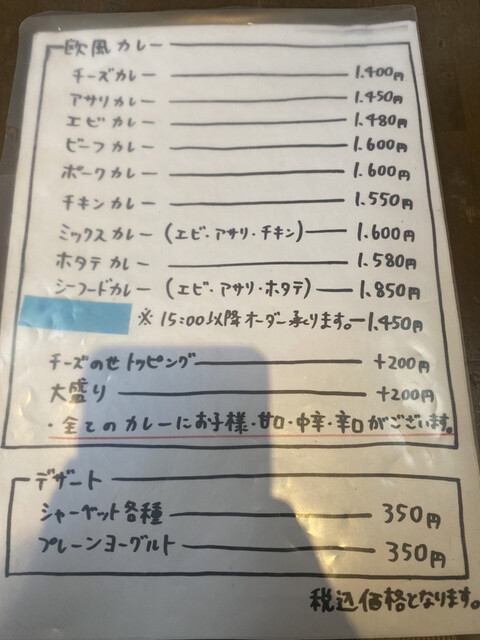 欧風カレー
チーズカレー 1.400円
アサリカレー 1.450円
エビカレー 1.480円
ビーフカレー 1.600円
ポークカレー 1.600円
チキンカレー 1.550円
ミックスカレー (エビ・アサリ・チキン) 1.600円
ホタテカレー 1.580円
シーフードカレー (エビ・アサリ・ホタテ) 1.850円
※15:00以降オーダー承ります。 1.450円
チーズのせトッピング +200円
大盛り +200円
・全てのカレーにお子様・甘口・中辛・辛口がございます。
デザート
シャーベット各種 350円
プレーンヨーグルト 350円
税込価格となります。